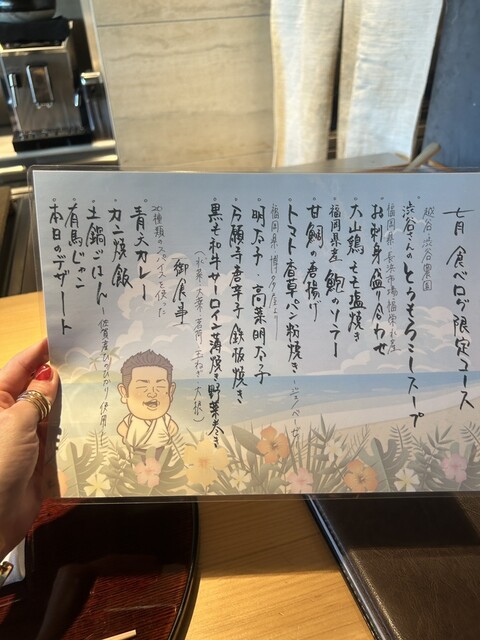 七月 食べログ限定コース
越谷 渋谷農園
渋谷さんのとうもろこしスープ
福岡県 長浜市場・協栄水産
お刺身盛り合わせ
大山鶏もも塩焼き
福岡県産 鮑のソテー
甘鯛の唐揚げ
トマト香草パン粉焼き
福岡県 博多屋より
明太子・高菜明太子
万願寺唐辛子鉄板焼き
黒毛和牛サーロイン薄焼き野菜巻き
御食事
20種類のスパイスを使った
青天カレー
カニ焼飯
土鍋ごはん 佐賀産ひのひかり使用
有馬ジャン
本日のデザート